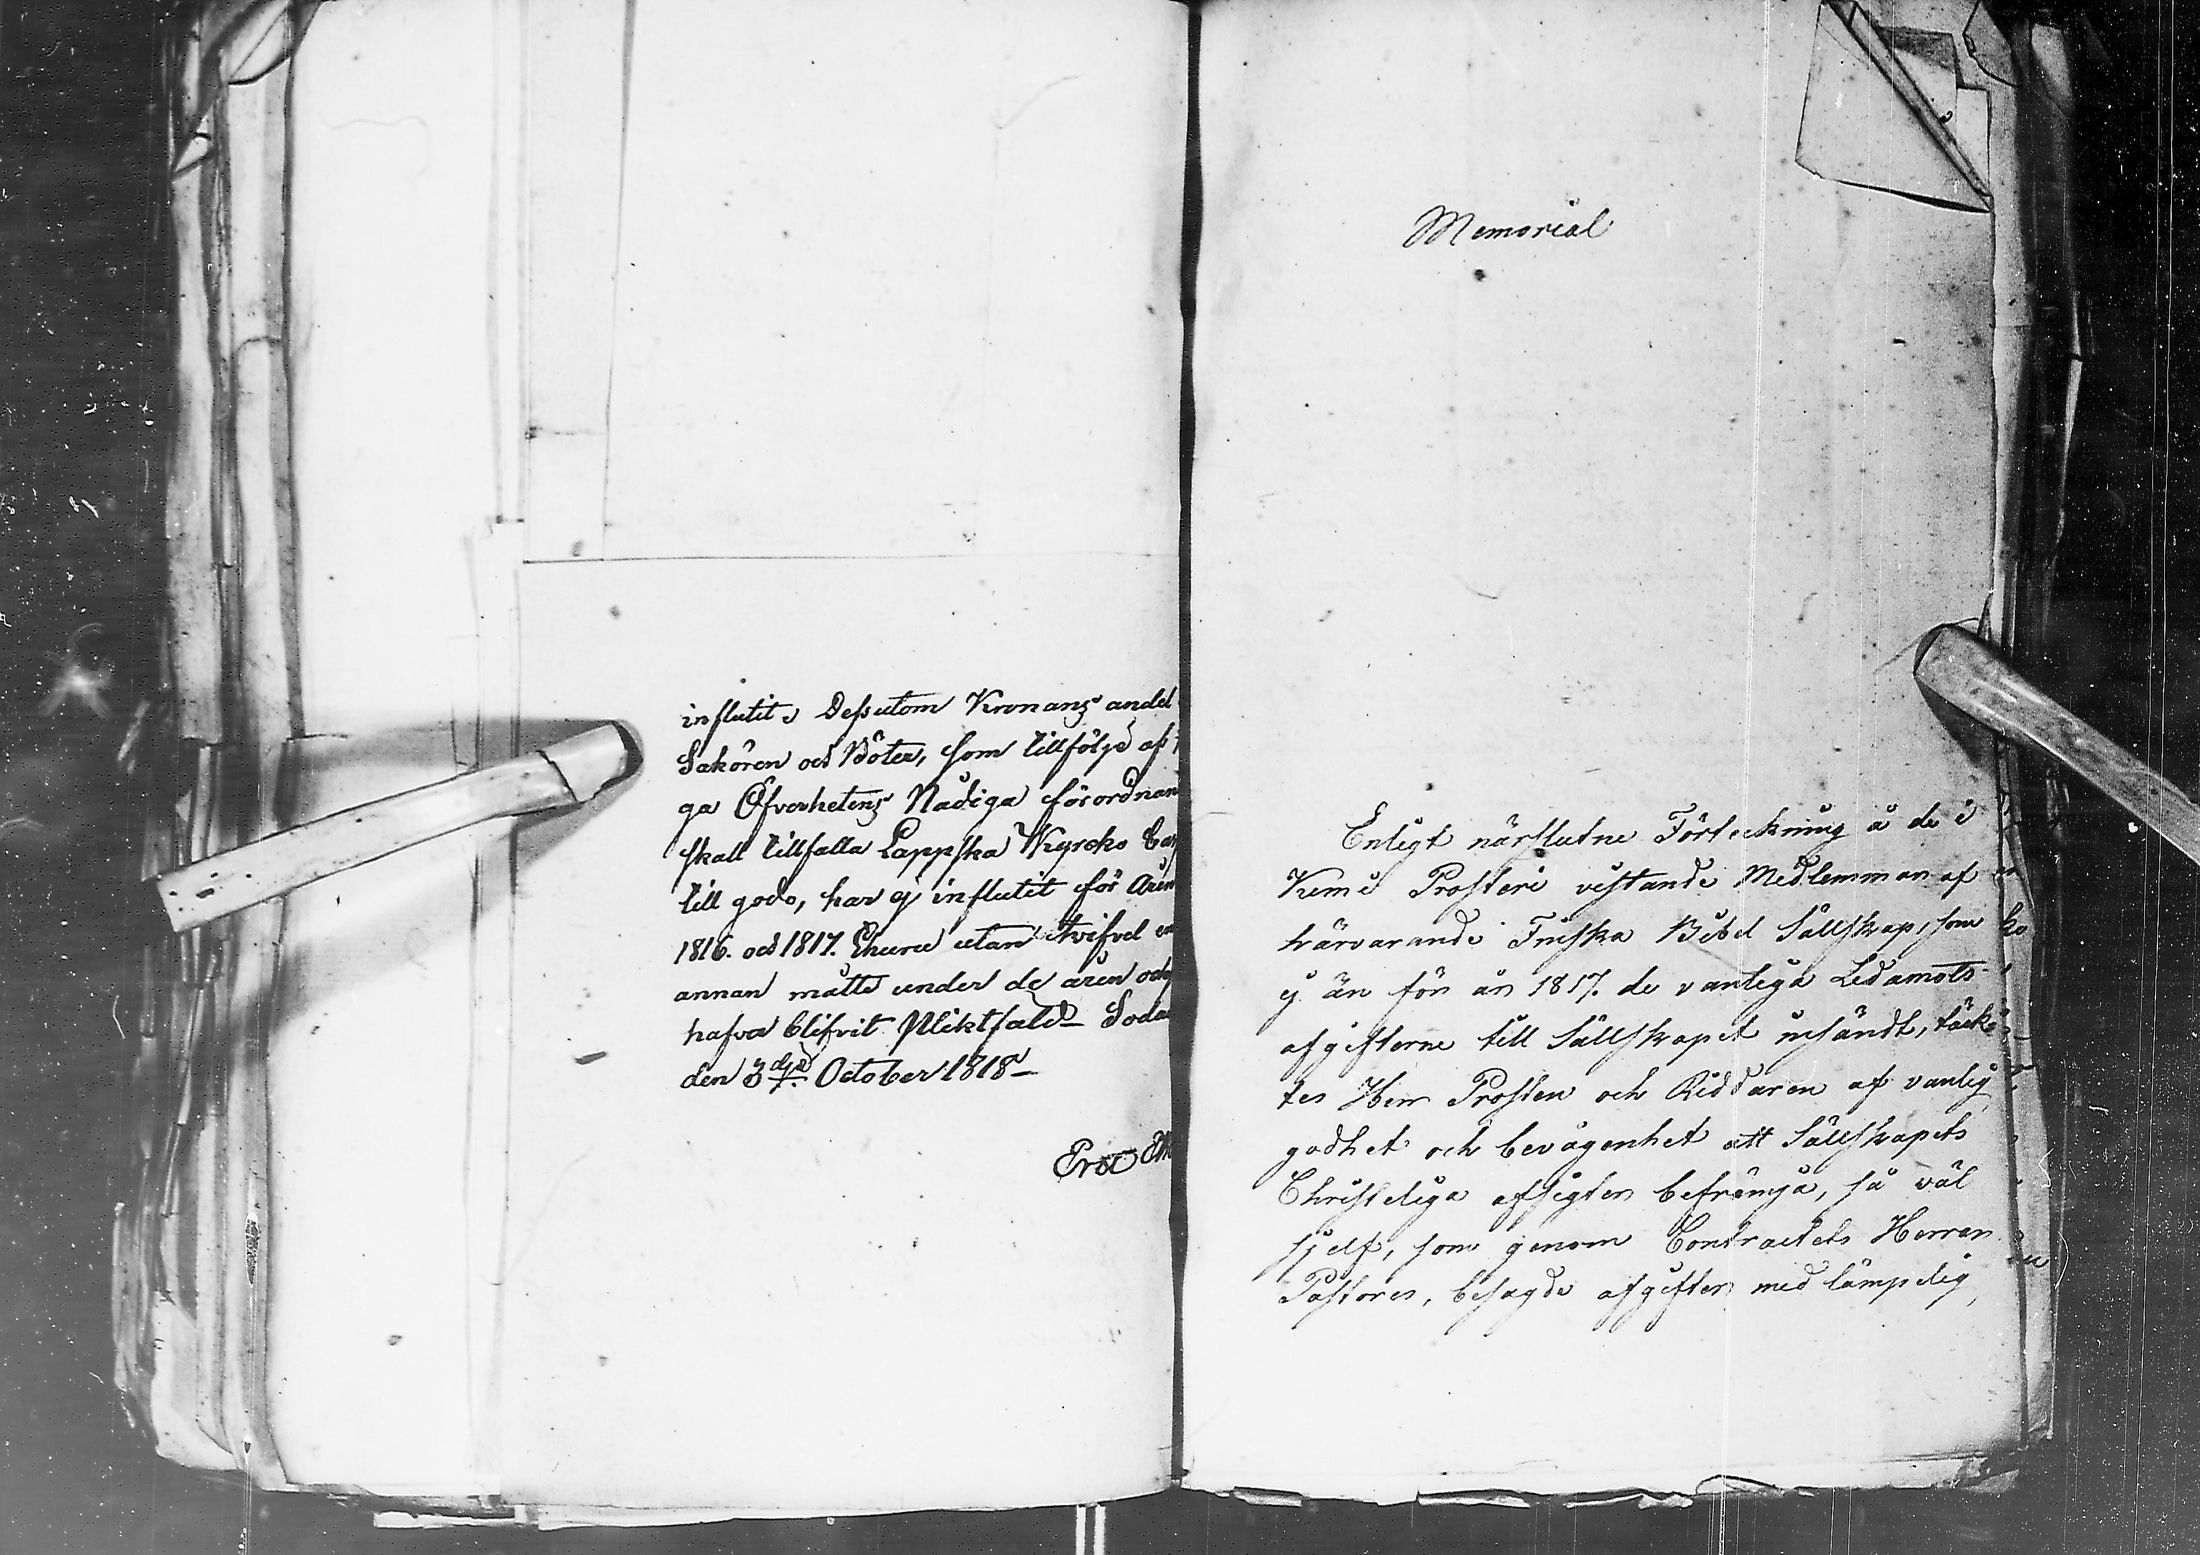 influtit. Dessutom Kronans andel
Sakören och Böter, som tillfölje af
ga Öfverhetens Nådiga förordnan
skall tillfalla Lappska Kyrcko Cas
till godo, har ej influtit för Åren
1816. och 1817. Ehuru utan tvifvel en
annan måtte under de åren och
hafva blifvit Pliktfäld. Soda
den 3dje October 1818.
Eric M
Memorial
Enligt närslutne Förteckning å de i
Kemi Prosteri vistande Medlemmar af
härvarande Finska Bibel Sällskap, som
ej än för år 1817. de vanliga Ledamots-
afgifterne till Sällskapet insändt, täck-
tes Herr Prosten och Riddaren af vanlig
godhet och bevågenhet att Sällskapets
Christeliga afsigter befrämja, så väl
sjelf, som genom Contractets Herrar
Pastorer, besagde afgifter med lämpelig